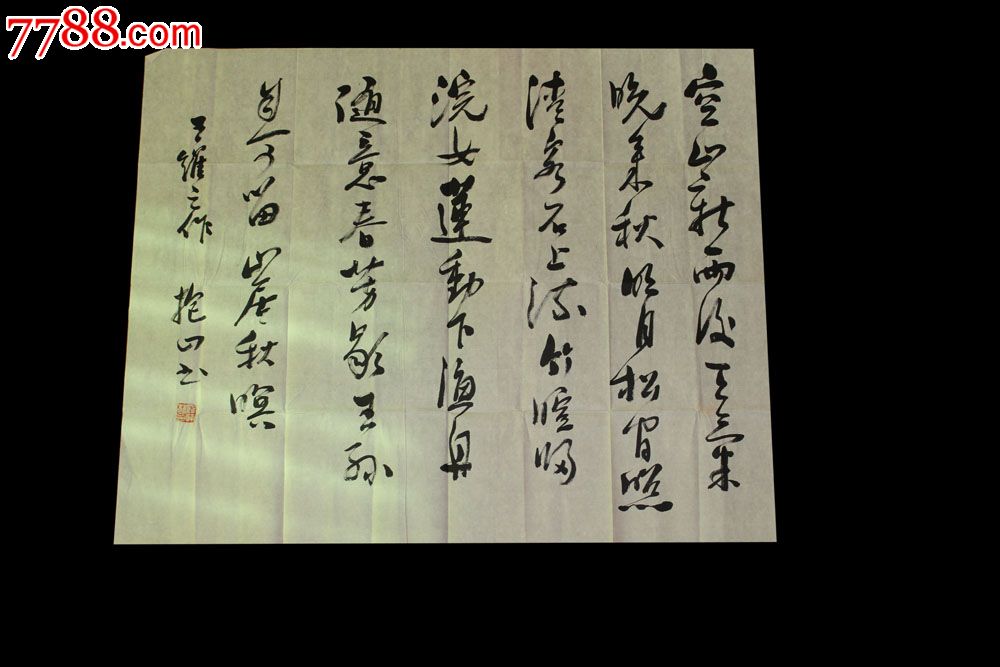 7788.com
空山新雨後天氣
晚来秋明月松间照
清泉石上流竹喧归
浣女蓮動下漁舟
随意春芳歇王孫
自可留 山居秋暝
王維之作 抱山书